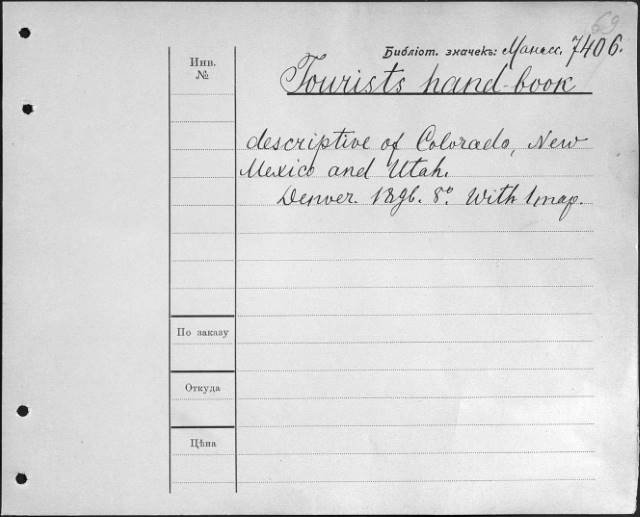 69
Библіот. значекъ: Манасс. 7406.
Инв.
№
Tourists hand-book
descriptive of Colorado, New
Mexico and Utah.
Denver. 1896. 8º. With 1 map.
По заказу
Откуда
Цѣна